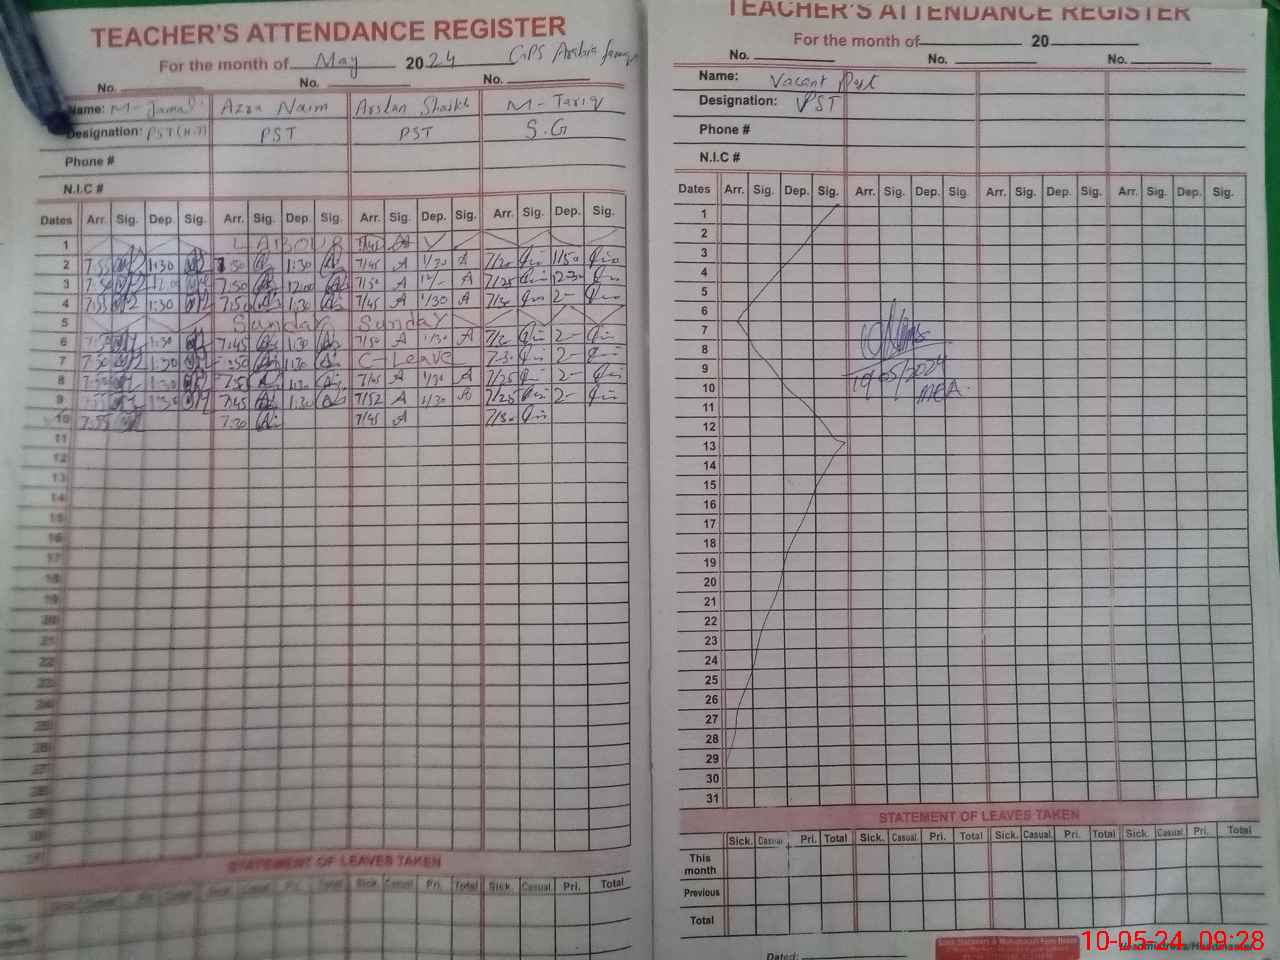 TEACHER'S ATTENDANCE REGISTER
For the month of May 2024 GPS Arabia
No. No. No.
Name: M-Jamal Azra Naim Arslan Shaikh M-Tariq
Designation: PST(H.T) PST PST S.G
Phone #
N.I.C #
Dates Arr. Sig. Dep. Sig. Arr. Sig. Dep. Sig. Arr. Sig. Dep. Sig. Arr. Sig. Dep. Sig.
1 LABOUR 7/45 A
2 7:55 1:30 7:50 1:30 7/45 A 1/30 A 7/20 1/50
3 7:50 12:00 7:50 12:00 7/50 A 12/- A 7/25 12-30
4 7:55 1:30 7:50 1:30 7/45 A 1/30 A 7/30 2-
5 Sunday Sunday
6 7:50 1:30 7:45 1:30 7/50 A 1/30 A 2-
7 7:50 1:30 7:50 1:30 C-Leave 7-30 2-
8 7:50 1:30 7:55 1:30 7/45 A 1/30 A 7/25 2-
9 7:55 1:30 7:45 1:30 7/52 A 1/30 A 7/25 2-
10 7:55 7:30 7/45 A 7/30
11
12
13
14
15
16
17
18
19
20
21
22
23
24
25
26
27
28
29
30
STATEMENT OF LEAVES TAKEN
Sick. Casual Pri. Total Sick. Casual Pri. Total Sick. Casual Pri. Total
TEACHER'S ATTENDANCE REGISTER
For the month of 20
No. No. No.
Name: Vacant Post
Designation: PST
Phone #
N.I.C #
Dates Arr. Sig. Dep. Sig. Arr. Sig. Dep. Sig. Arr. Sig. Dep. Sig. Arr. Sig. Dep. Sig.
1
2
3
4
5
6
7
8
9
10 10/05/2024
MEA
11
12
13
14
15
16
17
18
19
20
21
22
23
24
25
26
27
28
29
30
31
STATEMENT OF LEAVES TAKEN
Sick. Casual Pri. Total Sick. Casual. Pri. Total Sick. Casual. Pri. Total Sick. Casual. Pri. Total
This month
Previous
Total
Dated: Headmistress/Headmaster
10-05-24 09:28